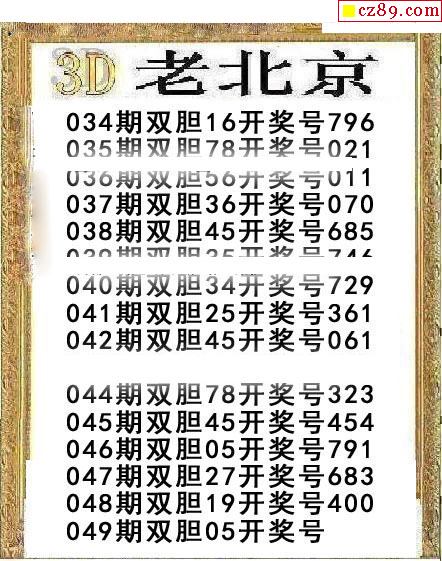 cz89.com
3D 老北京
034期双胆16开奖号796
035期双胆78开奖号021
036期双胆56开奖号011
037期双胆36开奖号070
038期双胆45开奖号685
039期双胆35开奖号746
040期双胆34开奖号729
041期双胆25开奖号361
042期双胆45开奖号061
044期双胆78开奖号323
045期双胆45开奖号454
046期双胆05开奖号791
047期双胆27开奖号683
048期双胆19开奖号400
049期双胆05开奖号